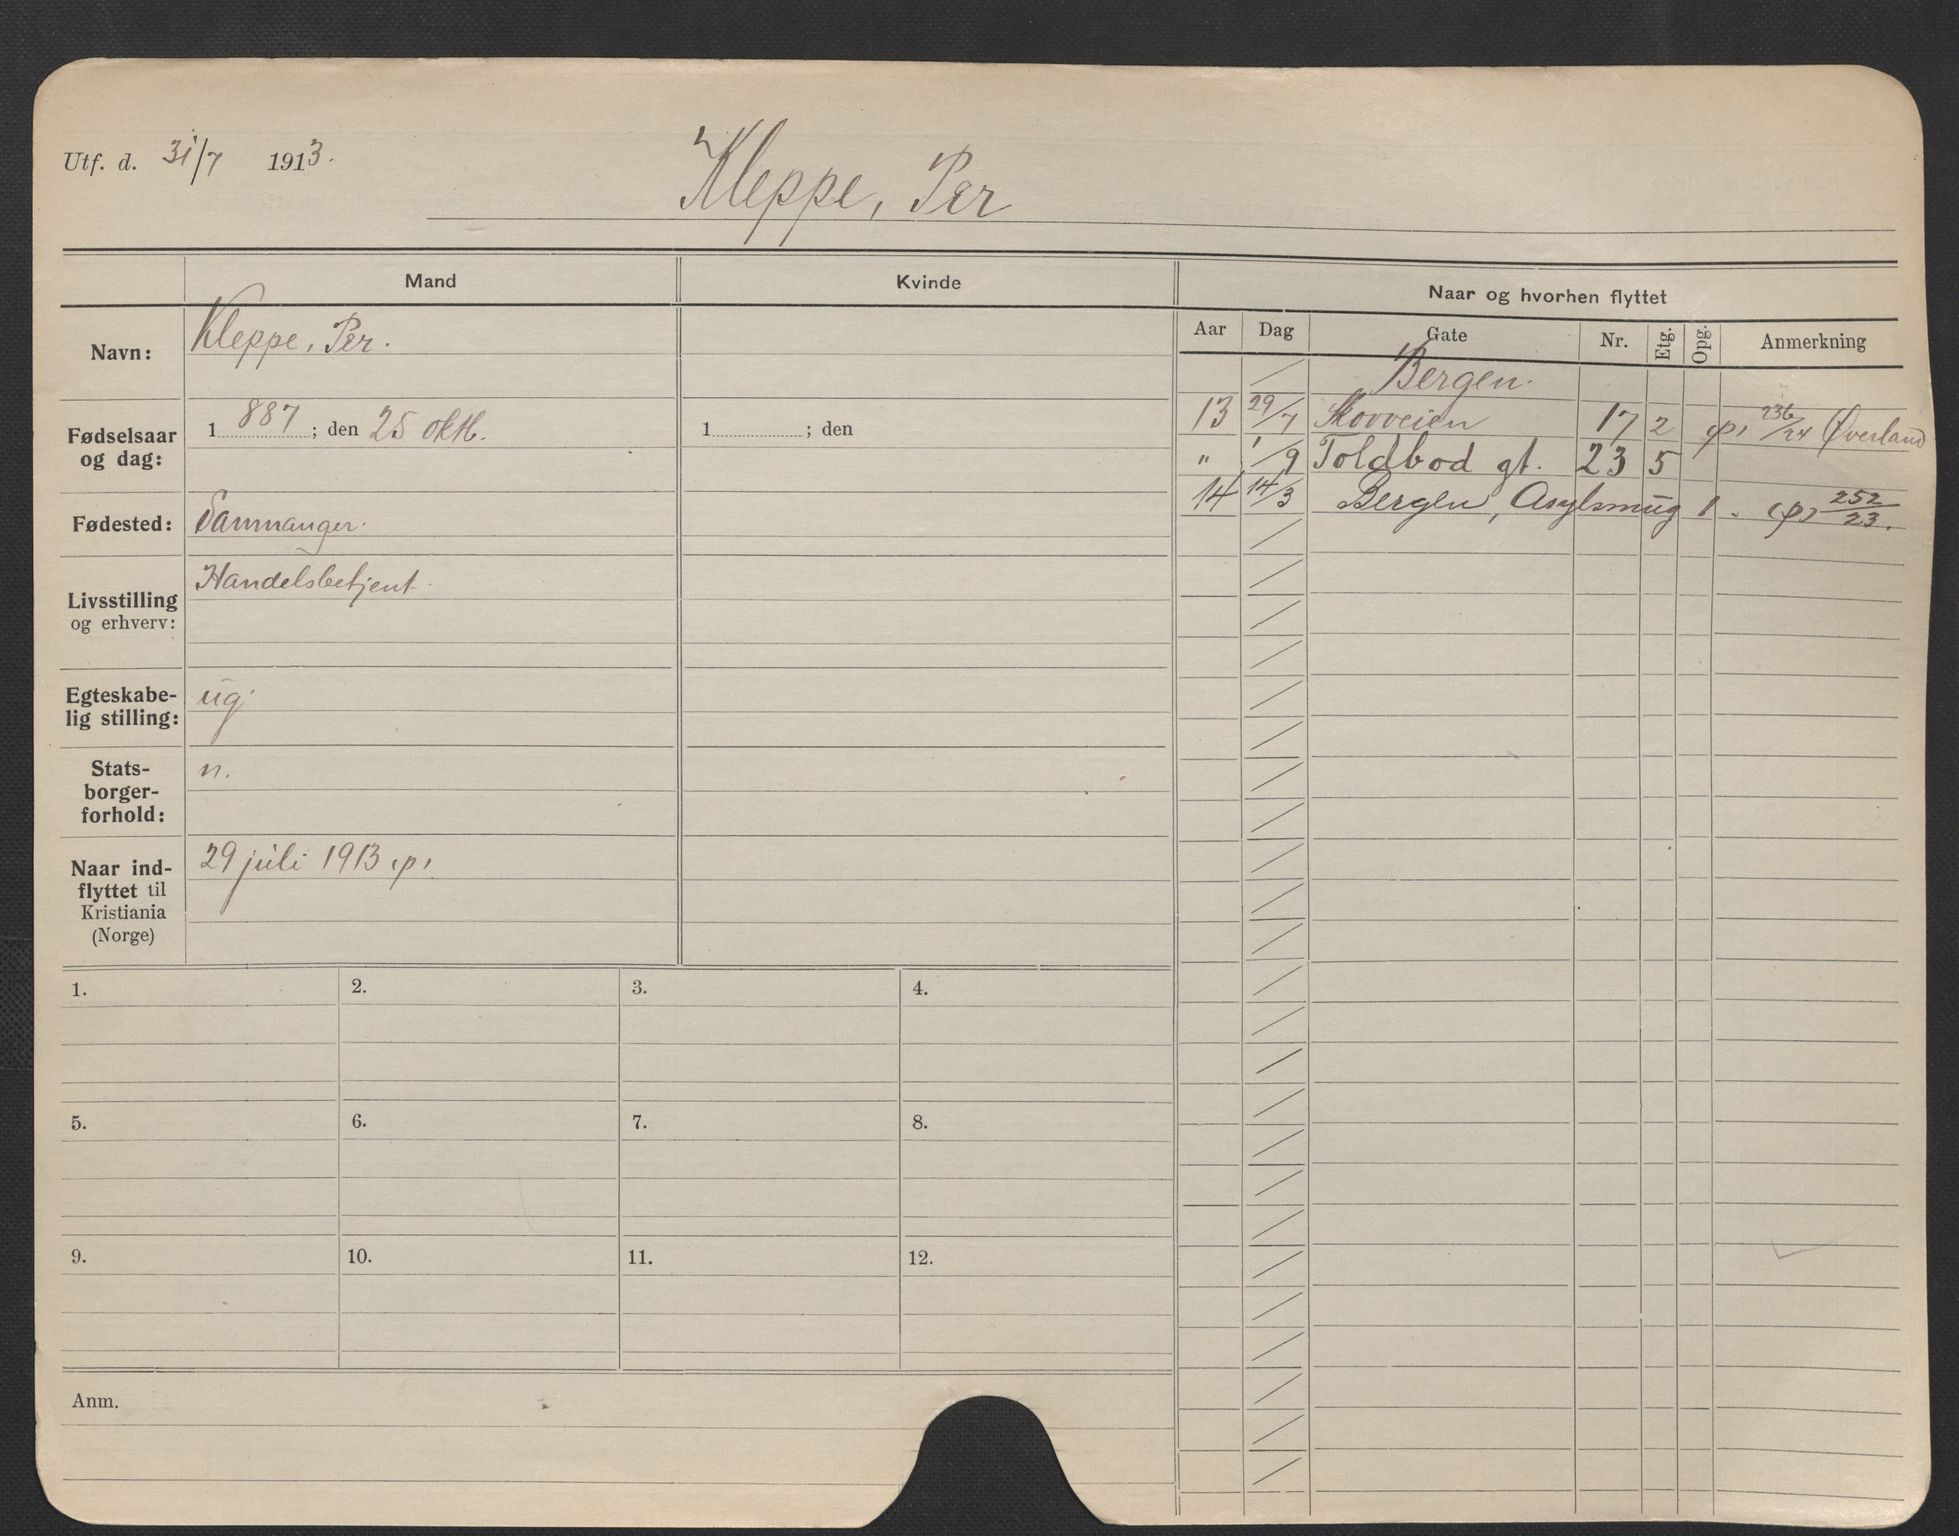 Utf. d. 31/7 1913.
Kleppe, Per
Mand
Kvinde
Naar og hvorhen flyttet
Navn:
Kleppe, Per.
Aar Dag Gate Nr. Etg. Opg. Anmerkning
Bergen.
Fødselsaar og dag:
1887; den 25 oktb.
1 ; den
13 29/7 Skovveien 17 2 (p) 236/24 Øverland
" 1/9 Toldbod gt. 23 5
14 14/3 Bergen, Asylsmug 1. (p) 252/23.
Fødested:
Samnanger.
Livsstilling
og erhverv:
Handelsbetjent.
Egteskabe-
lig stilling:
ug.
Stats-
borger-
forhold:
n.
Naar ind-
flyttet til
Kristiania
(Norge)
29 juli 1913 (p)
1. 2. 3. 4.
5. 6. 7. 8.
9. 10. 11. 12.
Anm.